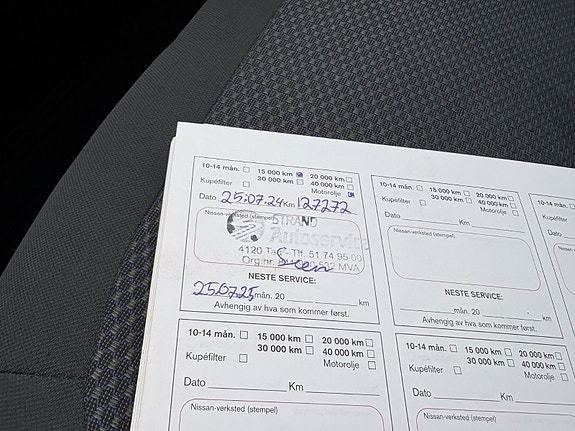 10-14 mån. 15 000 km 20 000 km
30 000 km 40 000 km
Kupéfilter Motorolje
Dato 25.07.24 Km 127272
Nissan-verksted (stempel)
STRAND
Autoservice
4120 Tau Tlf. 51 74 95 00
Org.nr. MVA
NESTE SERVICE:
25.07.25 mån. 20 km
Avhengig av hva som kommer først.
10-14 mån. 15 000 km 20 000 km
30 000 km 40 000 km
Kupéfilter Motorolje
Dato Km
Nissan-verksted (stempel)
NESTE SERVICE:
mån. 20 km
Avhengig av hva som kommer først.
10-14 mån.
Kupéfilter
Dato
Nissan-verksted
10-14 mån. 15 000 km 20 000 km
30 000 km 40 000 km
Kupéfilter Motorolje
Dato Km
Nissan-verksted (stempel)
10-14 mån. 15 000 km 20 000 km
30 000 km 40 000 km
Kupéfilter Motorolje
Dato Km
Nissan-verksted (stempel)